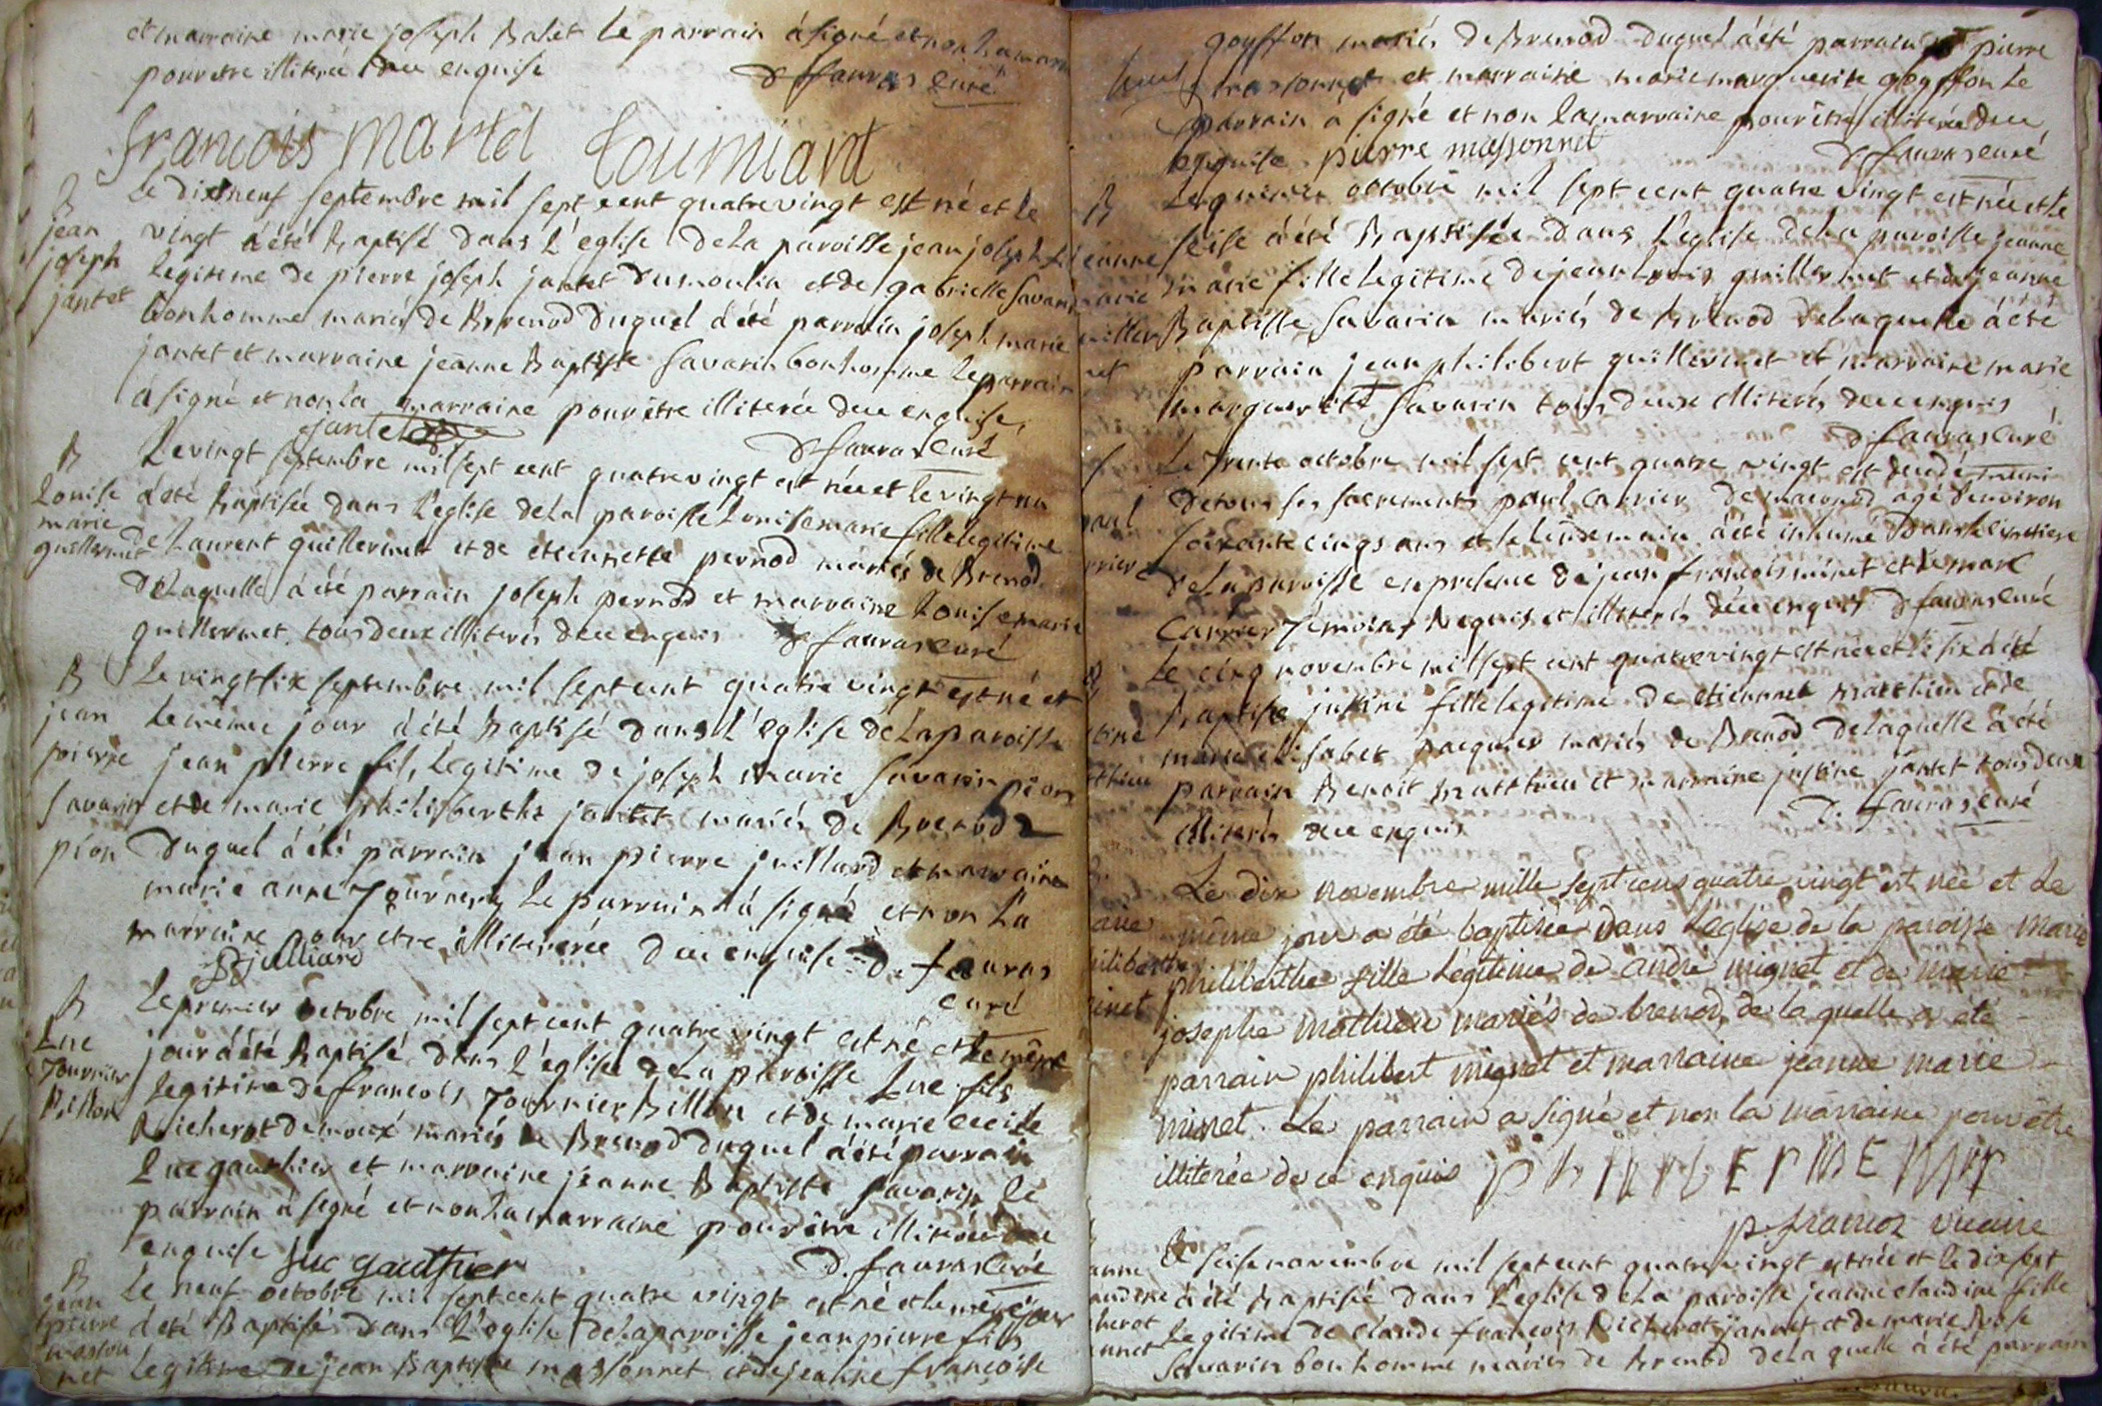 et marraine marie joseph Balet le parrain à signé et non la marr
pour etre illiterée dece enquise D faura s curé
francois martel tourniard
B
jean
joseph
jantet
Le dixneuf septembre mil sept cent quatre vingt est né et le
vingt à été Baptisé dans L'église de la paroisse jean joseph fils
legitime de pierre joseph jantet dumoulin et de gabrielle savarin
bonhomme mariés de Brenod duquel à été parrain joseph marie
jantet et marraine jeanne Baptiste savarin bonhomme le parrain
à signé et non la marraine pour être illiterée dece enquise
jantet D fauras curé
B
Louise
marie
guillermet
Le vingt septembre mil sept cent quatre vingt est née et le vingt un
à été Baptisée dans L'église de la paroisse Louise marie fille legitime
de Laurent guillermet et de etiennette pernod mariés de Brenod
de laquelle à été parrain joseph pernod et marraine Louise marie
guillermet tous deux illiterés dece enquis D fauras curé
B
jean
pierre
savarin
pion
Le vingt six septembre mil sept cent quatre vingt est né et
le même jour à été baptisé dans L'église de la paroisse
jean pierre fils legitime de joseph marie savarin pion
et de marie philiberthe jantet mariés de Brenod
duquel à été parrain jean pierre juillard et marraine
marie anne Tournery le parrain à signé et non la
marraine pour etre illiterée dece enquise D. fauras
jp julliard curé
B
Luc
Tournier
Billon
Le premier octobre mil sept cent quatre vingt est né et le même
jour à été Baptisé dans L'église de la paroisse Luc fils
legitime de francois Tournier Billon et de marie cecile
Richerot demoux mariés de Brenod duquel à été parrain
Luc gauthier et marraine jeanne Baptiste savarin le
parrain à signé et non la marraine pour être illiterée dece
enquise luc gauthier D. fauras curé
B
jean
pierre
masson
net
Le neuf octobre mil sept cent quatre vingt est né et le même jour
à été Baptisé dans L'église de la paroisse jean pierre fils
legitime de jean Baptiste massonnet et de jeanne françoise
gouffon mariés de Brenod duquel à été parrain pierre
massonnet et marraine marie marguerite gouffon le
parrain a signé et non la marraine pour être illiterée dece
enquise pierre massonnet D fauras curé
B
jeanne
marie
guiller
met
Le quinze octobre mil sept cent quatre vingt est née et le
seise à été Baptisée dans L'église de la paroisse jeanne
marie fille legitime de jean Louis guillermet et de jeanne
Baptiste savarin mariés de Brenod de laquelle à été
parrain jean philibert guillermet et marraine marie
marguerite savarin tous deux illiterés dece enquis
D. fauras curé
S
paul
rrier
Le trente octobre mil sept cent quatre vingt est decedé muni
de tous ses sacrements paul carrier de macornod agé denviron
soixante cinqs ans et le lendemain à été inhumé dans le cimetiere
de la paroisse en presence de jean françois minet et de marc
carrier témoins requis et illiterés dece enquis D fauras curé
B
stine
tthieu
Le cinq novembre mil sept cent quatre vingt est née et le six à été
Baptisée justine fille legitime de etiennet matthieu et de
marie elisabet pacquier mariés de Brenod de laquelle à été
parrain Benoit matthieu et marraine justine jantet tous deux
illiterés dece enquis D. fauras curé
B.
arie
hiliberthe
inet
Le dix novembre mille sept cens quatre vingt est née et le
même jour a été baptisée dans L'église de la paroisse marie
philiberthe fille Légitime de andré mignet et de marie
josephe mathieu mariés de brenod, de la quelle a été
parrain philibert mignet et marraine jeanne marie
minet. Le parrain a signé et non la marraine pour être
illiterée de ce enquis
p. francoz vicaire
anne
audine
cherot
annet
Le seise novembre mil sept cent quatre vingt est née et le dix sept
à été Baptisée dans L'église de la paroisse jeanne claudine fille
legitime de claude francois Richerot jannet et de marie Rose
savarin bonhomme mariés de Brenod de la quelle à été parrain